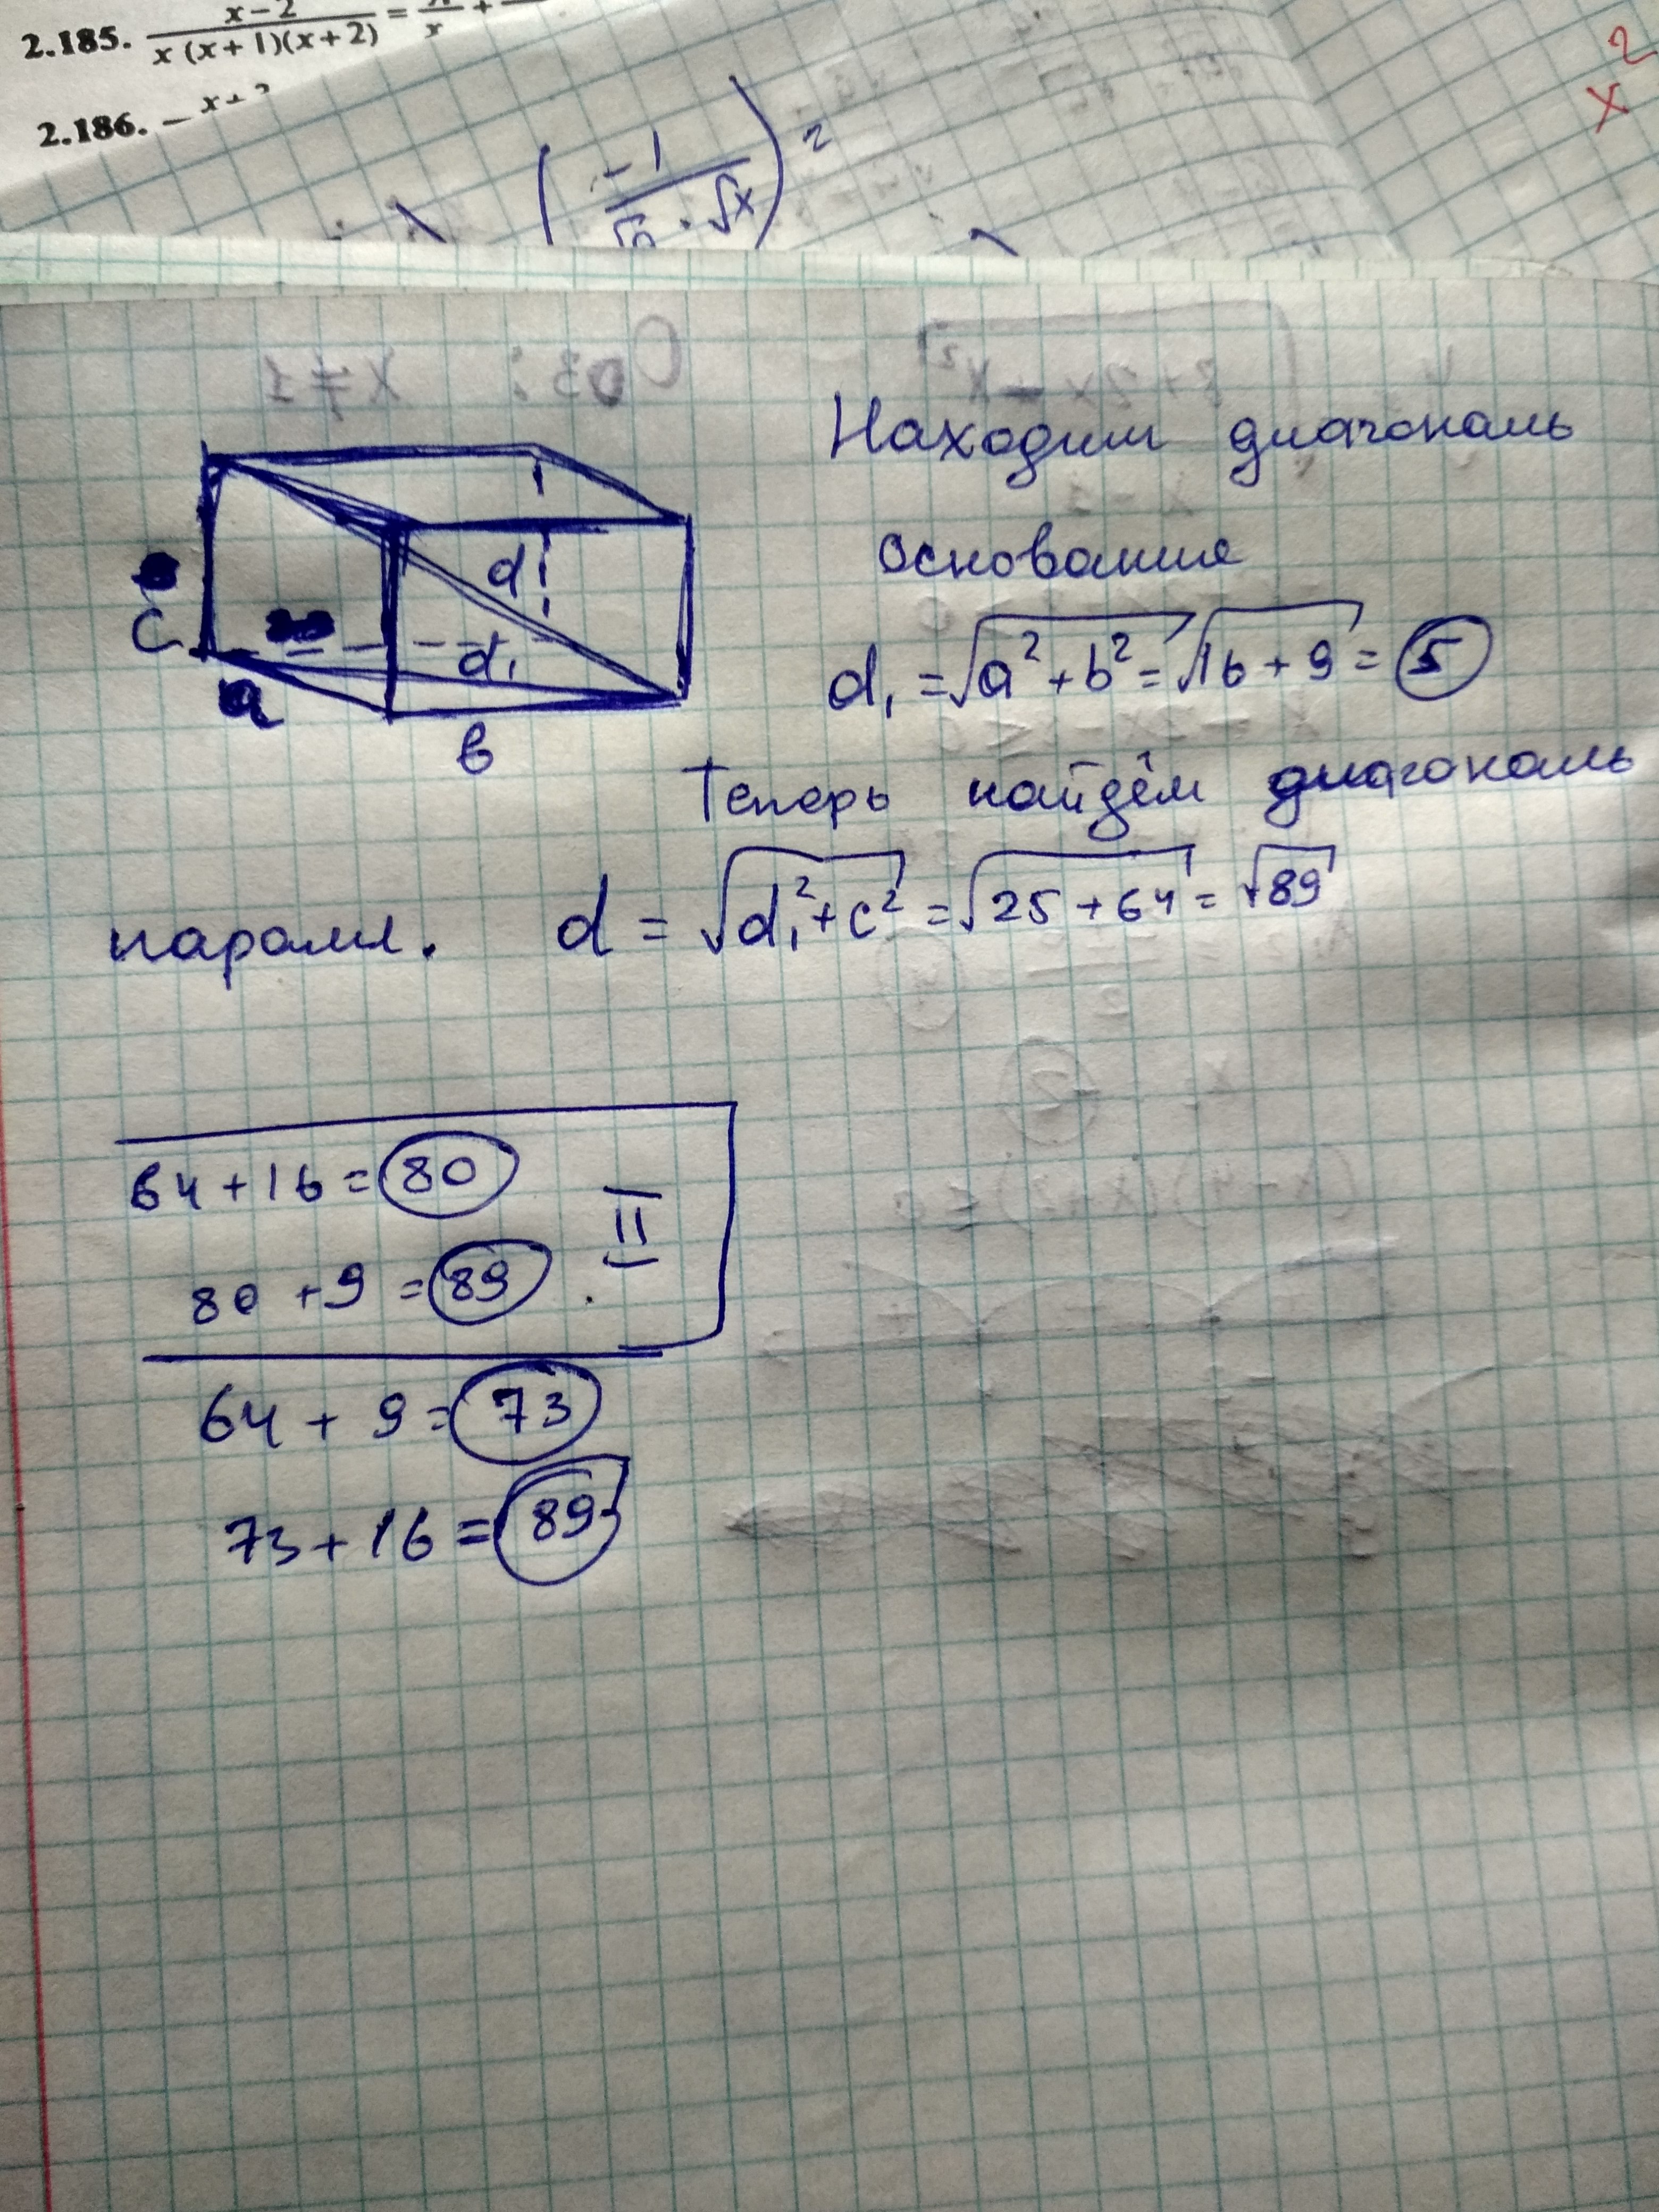 2.185. x-2 / x(x+1)(x+2) = /x +
2.186. - x+
x 2
(-1 / · √x)²
Находим диагональ
основания
c
a
d
d₁
в
d₁ = √a² + b² = √16 + 9 = 5
Теперь найдём диагональ
парал. d = √d₁² + c² = √25 + 64 = √89
64 + 16 = 80
80 + 9 = 89
II
64 + 9 = 73
73 + 16 = 89